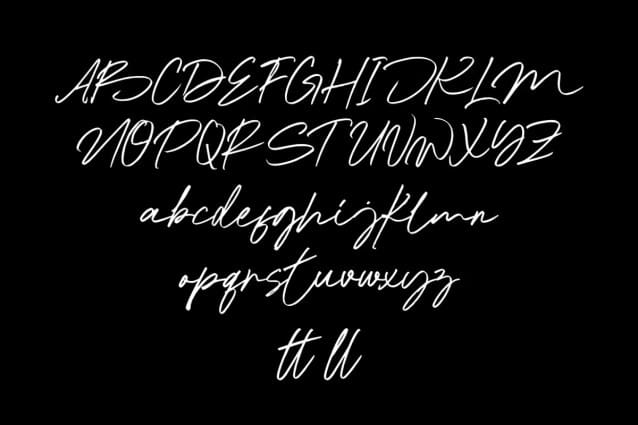 ABCDEFGHIJKLM
NOPQRSTUVWXYZ
abcdefghijklmn
opqrstuvwxyz
tt ll